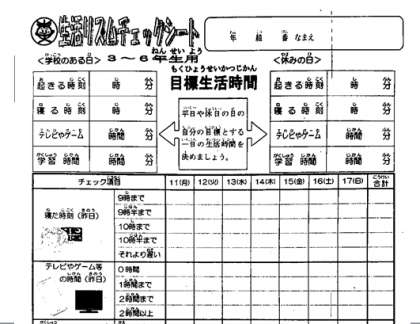 生活リズムチェックシート
年 組 番 なまえ
3～6年生用
ねん せい よう
<学校のある日>
<休みの日>
もくひょうせいかつじかん
目標生活時間
起きる時刻 時 分
寝る時刻 時 分
テレビやゲーム 時間 分
学習時間 時間 分
平日や休日の日の
自分の目標とする
一日の生活時間を
決めましょう。
起きる時刻 時 分
寝る時刻 時 分
テレビやゲーム 時間 分
学習時間 時間 分
チェック項目 11(月) 12(火) 13(水) 14(木) 15(金) 16(土) 17(日) 合計
寝た時刻(昨日)
9時まで
9時半まで
10時まで
10時半まで
それより遅い
テレビやゲーム等
の時間(昨日)
0時間
1時間まで
2時間まで
2時間以上